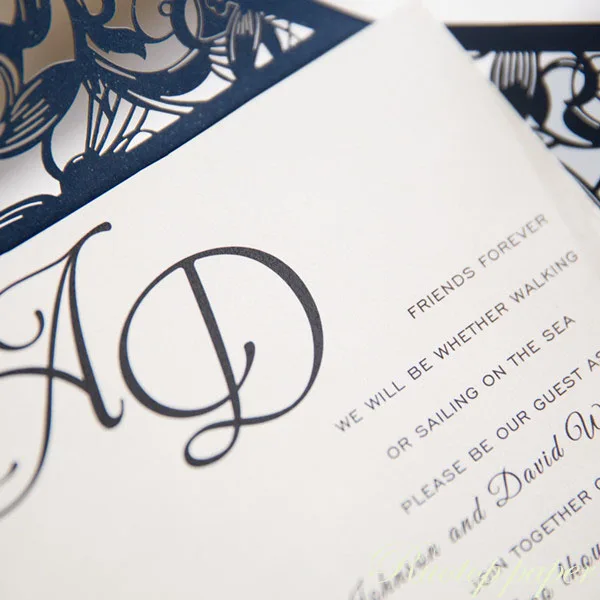 A D
FRIENDS FOREVER
WE WILL BE WHETHER WALKING
OR SAILING ON THE SEA
PLEASE BE OUR GUEST AS
and David W
TOGETHER